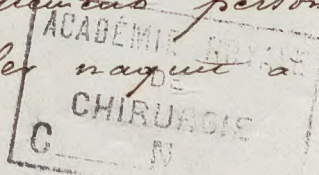 person
ACADÉMIE
les naquit a
DE
CHIRURGIE
C N